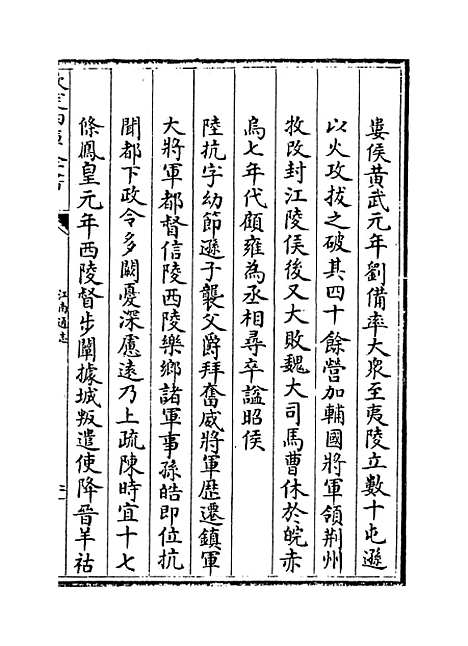 婁侯黃武元年劉備率大衆至夷陵立數十屯遜
以火攻拔之破其四十餘營加輔國將軍領荆州
牧改封江陵侯後又大敗魏大司馬曹休於皖赤
烏七年代顧雍為丞相尋卒諡昭侯
陸抗字幼節遜子襲父爵拜奮威將軍歴遷鎮軍
大將軍都督信陵西陵樂鄉諸軍事孫皓即位抗
聞都下政令多闕憂深慮遠乃上疏陳時宜十七
條鳳皇元年西陵督步闡據城叛遣使降晉羊祜
欽定四庫全書
江南通志